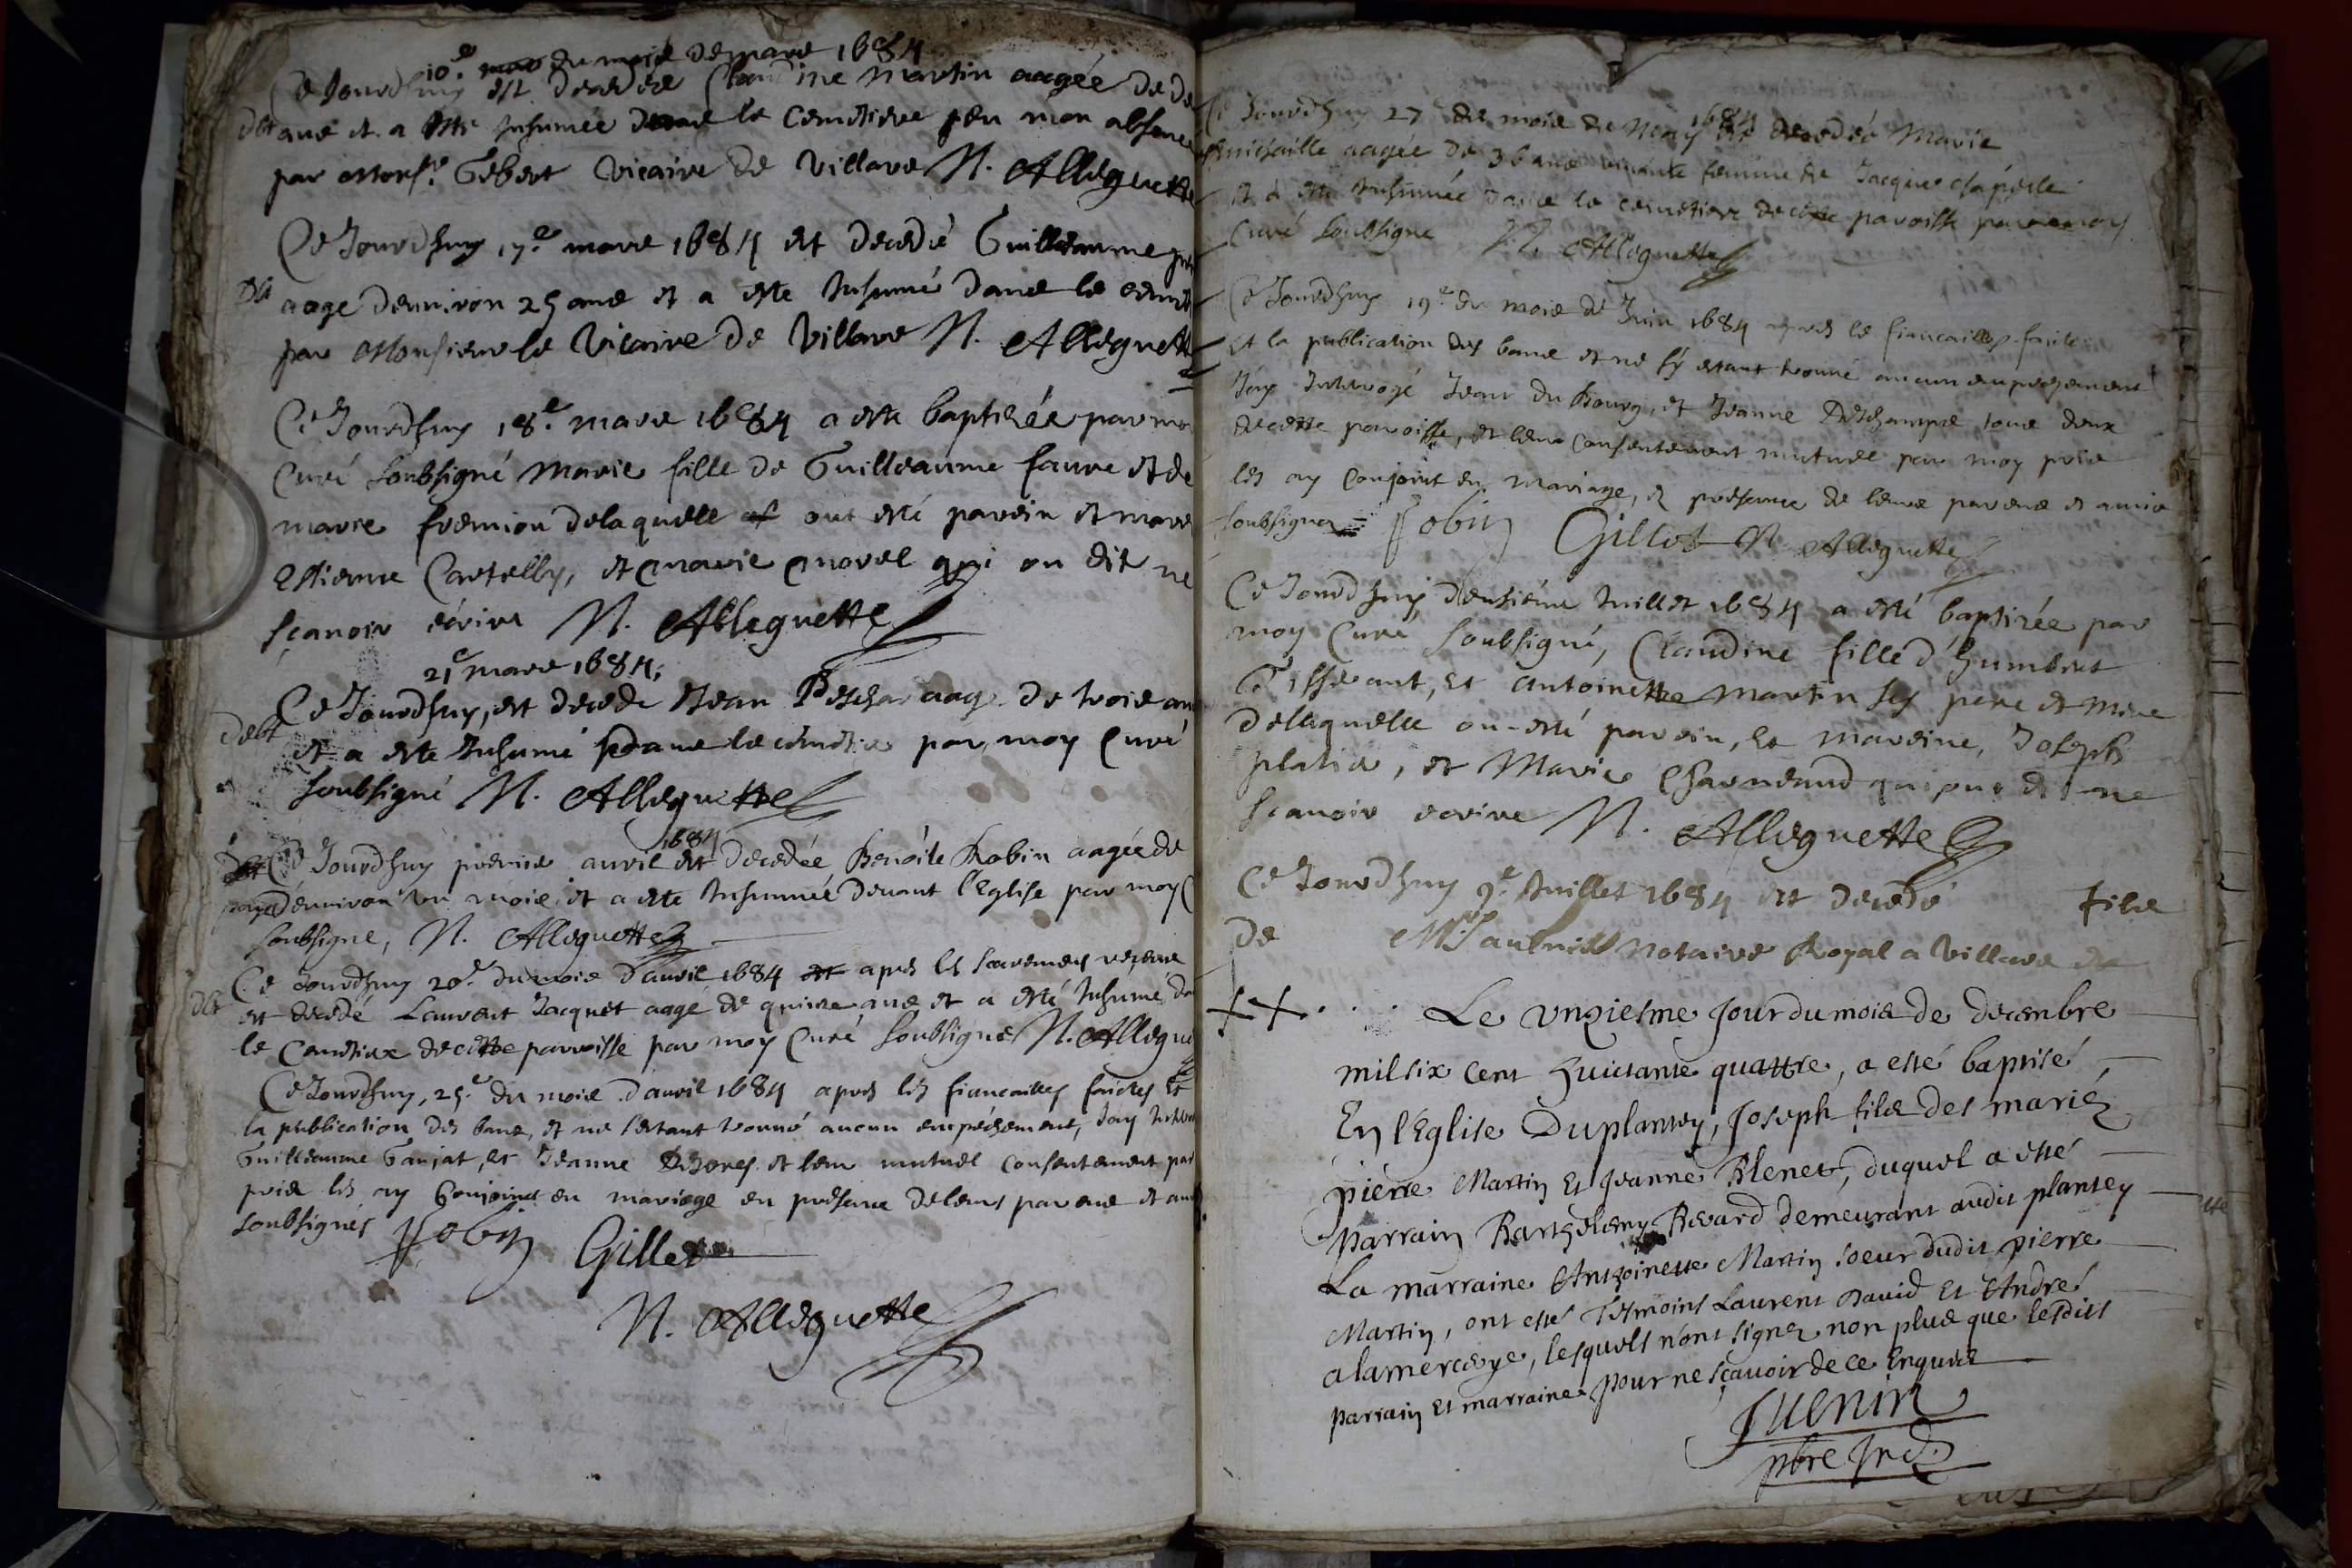 10e du mois de mars 1684
Ce Jourdhuy est decedee Claudine Martin aagée de
ans et a este Inhumée dans le cemetiere en mon absence
par Monsr. Gebert vicaire de Villars N. Alleguette
Ce Jourdhuy 17e mars 1684 est decedé Guilleaume
aagé denviron 25 ans et a este Inhumé dans le
par Monsieur le Vicaire de Villars N. Alleguette
Ce Jourdhuy 18e mars 1684 a este baptisée par moy
Curé soubsigné Marie fille de Guilleaume faure et de
marie fremion de laquelle ont esté parein et mare
Estienne Cartelly, et marie morel qui on dit ne
scavoir écrire N. Alleguette
21e mars 1684,
Ce Jourdhuy, est decede Jean aagé de trois an
et a este Inhumé dans le cemetiere par moy Curé
soubsigné N. Alleguette
1684
Ce Jourdhuy premier avril est decedée Benoite Robin aagée de
denviron un mois et a este Inhumée devant l'Eglise par moy C
soubsigne, N. Alleguette
Ce Jourdhuy 20e du mois d'avril 1684 apres les sacremens
est decedé Laurent Jacquet aagé de quinze ans et a esté Inhumé
le cemetiere de cette parroisse par moy Curé soubsigne N. Allegue
Ce Jourdhuy, 25e du mois d'avril 1684 apres les fiancailles faictes et
la publication des bans, et ne s'estant trouvé aucun empeschement, Jay
Guilleaume Ganjat, et Jeanne et leur mutuel consentement par
pris les ay conjoinct en mariage en presence de leurs parens et
soubsignés Robin Gillet
N. Alleguette
Ce Jourdhuy 27e du mois de May 1684 est decedée Marie
aagée de 36 ans vivante femme de Jacques chapelle
et a este Inhumée dans le cemetiere de cette paroisse par moy
Curé soubsigne N. Alleguette
Ce Jourdhuy 19e du mois de Juin 1684 apres les fiancailles faites
et la publication des bans et ne sy estant trouvé aucun empeschement
Jay Interrogé Jean du Bourg, et Jeanne Deschamps tous deux
de cette paroisse, et leur consentement mutuel par moy pris
les ay conjoint en mariage, presence de leurs parens et amis
soubsignez Robin Gillet N. Alleguette
Ce Jourdhuy deusiéme Juillet 1684 a esté baptisée par
moy Curé soubsigné, Claudine fille d'humbert
et Antoinette Martin ses pere et mere
de laquelle on esté parein, et mareine, Joseph
platia, et Marie Charneaud qui ont dit ne
scavoir ecrire N. Alleguette
Ce Jourdhuy 9e Juillet 1684 est decedé fils
de Mr notaire Royal a Villars
Le vnziesme Jour du mois de decembre
mil six cent huictante quattre, a esté baptisé
En l'Eglise Duplantey, Joseph fils des mariéz
pierre Martin Et Jeanne Blenet, duquel a esté
parrain Barthelemy Revard demeurant audit plantey
La marraine Anthoinette Martin soeur dudit pierre
Martin, ont esté Tesmoins Laurent David Et André
alamercerye, lesquels n'ont signez non plus que lesdits
parrain et marraine pour ne sçavoir de ce Enquis
Juenin
pbre